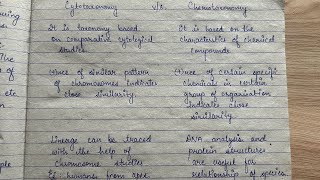 Cytotaxonomy v/s. Chemotaxonomy
It is taxonomy based
on comparative cytological
studies
It is based on the
characteristics of chemical
compounds
of similar pattern
of chromosomes indicates
close similarity.
of certain specific
chemicals in certain
group of organisation
Indicate close
similarity
Lineage can be traced
with the help of
Chromosome studies
humans from apes.
DNA analysis and
protein structures
are useful for
relationship of species.
uing
The
of
etc
ple